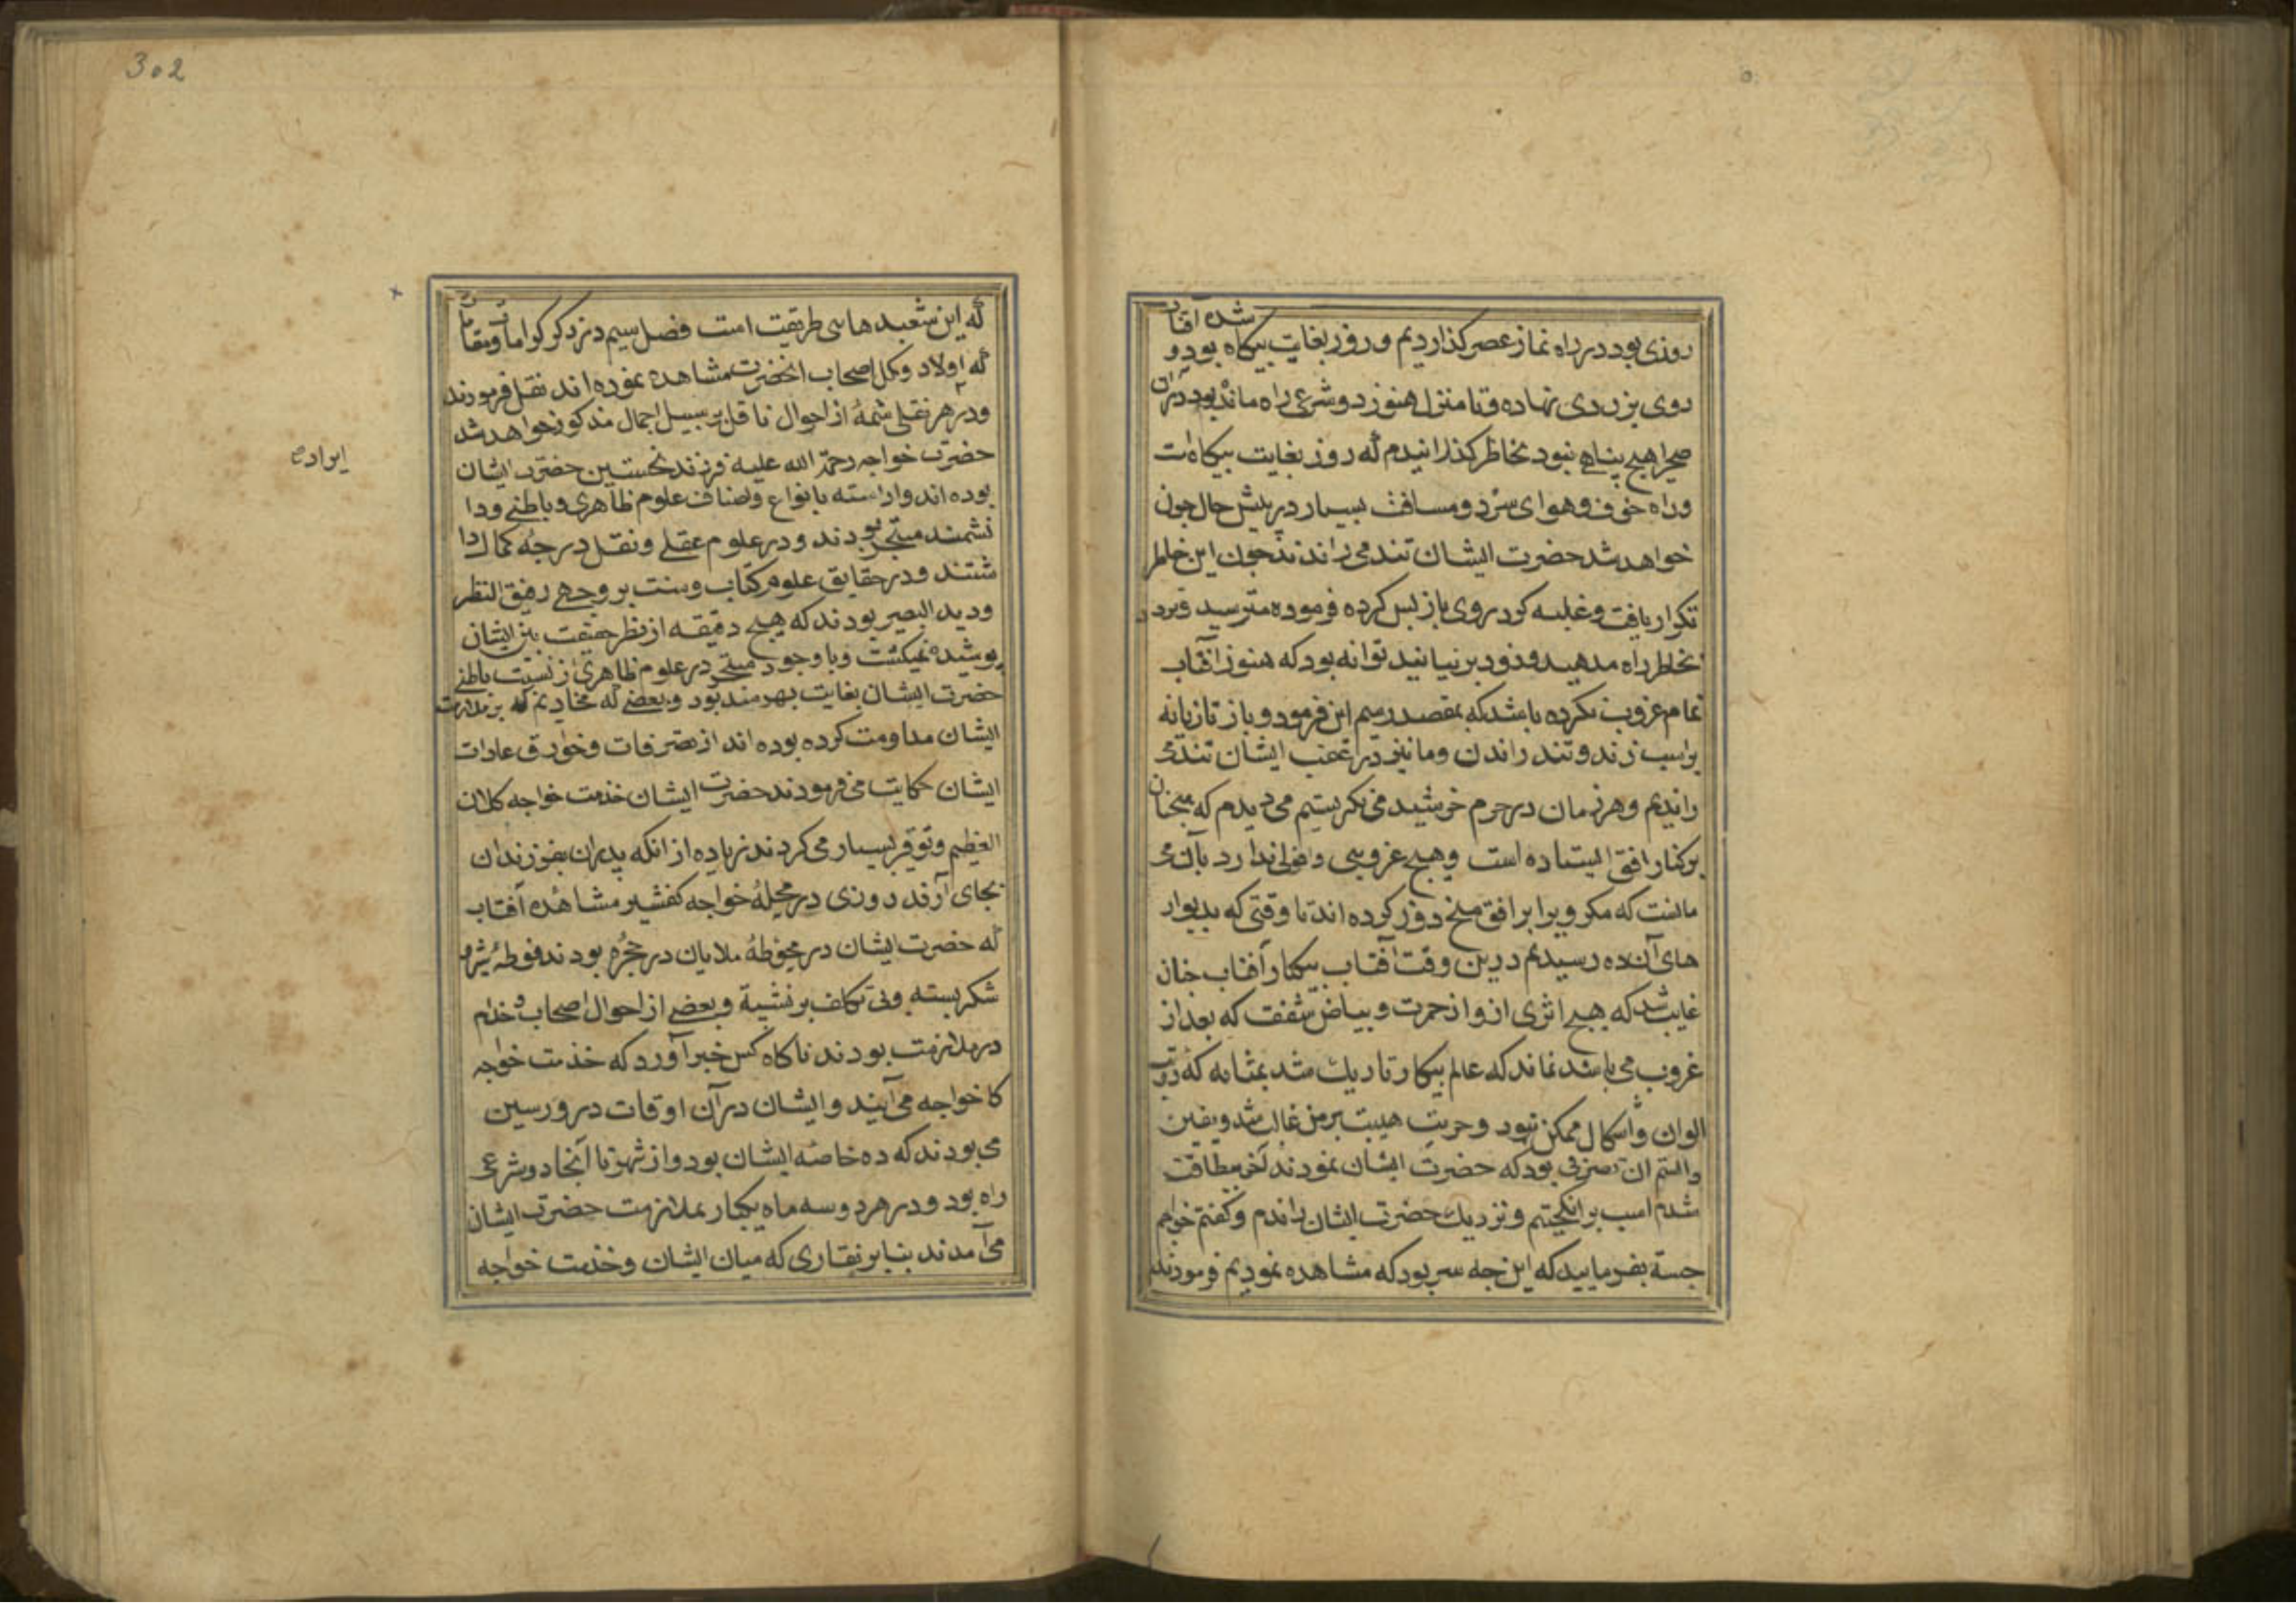 شده آفتاب
روزی بود در راه نماز عصر کذاردیم و روز بغایت بیکاه بود و
روی بزردی نهاده و تا منزل هنوز دو شرعی راه مانده بود در آن
صحرا هیچ پناهی نبود بخاطر کذرانیدم که روز بغایت بیکاه است
و راه خوف و هوای سرد و مسافت بسیار در پیش حال چون
خواهد شد حضرت ایشان تند می راندند چون این خاطر
تکرار یافت و غلبه کرد روی باز پس کرده فرموده مترسید و تردد
بخاطر راه مدهید و زود برنیانید توانه بود که هنوز آفتاب
تمام غروب نکرده باشد که بمقصد رسیم این فرمود و باز تازیانه
براسب زند و تند راندن و ما نیز در عقب ایشان تند می
راندیم و هر زمان در جرم خرشید می نکریستیم می دیدم که همچنان
برکنار افق ایستاده است و هیچ غروبی و افولی ندارد بآن می
مانست که مکر ویرا بر افق میخ دوز کرده اند تا وقتی که بدیوار
های آن ده رسیدیم درین وقت آفتاب بیکبار آفتاب چنان
غایب شد که هیچ اثری ازو از حمرت و بیاض شفقت که بعد از
غروب می باشد نماند که عالم بیکبار تاریک شد بمثابه که رؤیت
الوان و اشکال ممکن نبود و حریت هیبت بر من غالب شد و یقین
دانستم ان تصرفی بود که حضرت ایشان نمودند آخر بیطاقت
شدم اسب برانکیختم و نزدیک حضرت ایشان راندم و کفتم خواهم
جسة بفرمایید که این چه سر بود که مشاهده نمودیم فرمودند
302
که این شعبدهای طریقت است فصل سیم در ذکر کرامات و مقامات
که اولاد و کل اصحاب انحضرت مشاهده نموده اند نقل فرمودند
و در هر نقلی شمهٔ از احوال ناقل بر سبیل اجمال مذکور خواهد شد
حضرت خواجه رحمة الله علیه فرزند نخستین حضرت ایشان
بوده اند و اراسته بانواع و اصناف علوم ظاهری و باطنی و دا
نشمند متبحر بودند و در علوم عقلی و نقل درجه کمال دا
شتند و در حقایق علوم کتاب و سنت بر وجهی دقیق النظر
و دید البصیر بودند که هیچ دقیقه از نظر حقیقت بین ایشان
پوشیده نمیکشت و با وجود متبحر در علوم ظاهری از نسبت باطنی
حضرت ایشان بغایت بهرمند بود و بعضی که مخادیم که بر ملازمت
ایشان مداومت کرده بوده اند از تصرفات و خوارق عادات
ایشان حکایت می فرمودند حضرت ایشان خدمت خواجه کلان
العظیم و توقیر بسیار می کردند زیاده از انکه پدران بفرزندان
بجای آرند روزی در محلهٔ خواجه کفشیر مشاهده آفتاب
که حضرت ایشان در محوطهٔ ملایان در حجره بودند فوطهٔ
شکر بسته و بی تکلف برنشسة و بعضی از احوال اصحاب و خدام
در ملازمت بودند ناکاه کس خبر آورد که خدمت خواجه
کا خواجه می آیند و ایشان در آن اوقات در ورسین
می بودند که ده خاصه ایشان بود و از شهر تا آنجا دو شرعی
راه بود و در هر دو سه ماه یکبار بملازمت حضرت ایشان
می آمدند بنابر نقاری که میان ایشان و خدمت خواجه